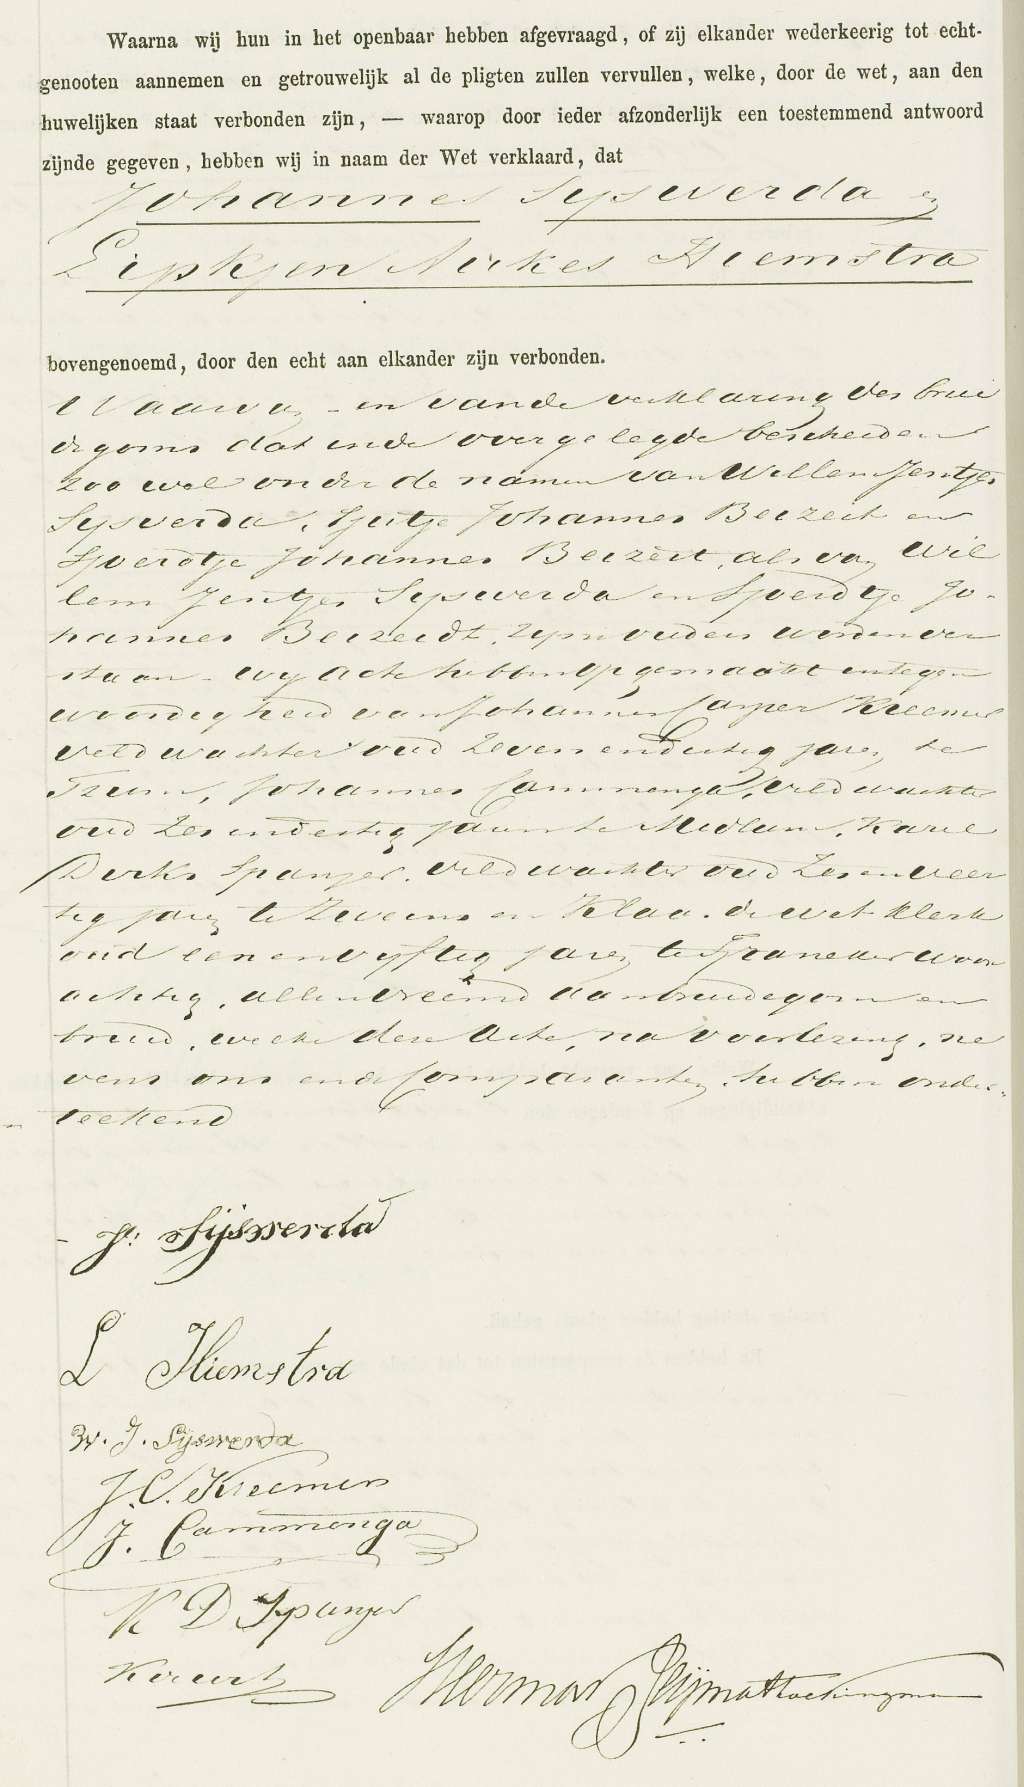 Waarna wij hun in het openbaar hebben afgevraagd, of zij elkander wederkeerig tot echt-
genooten aannemen en getrouwelijk al de pligten zullen vervullen, welke, door de wet, aan den
huwelijken staat verbonden zijn, — waarop door ieder afzonderlijk een toestemmend antwoord
zijnde gegeven, hebben wij in naam der Wet verklaard, dat
Johannes Sijswerda en
Liepkjen Nirkes Hiemstra
bovengenoemd, door den echt aan elkander zijn verbonden.
Waarvan - en van de verklaring des brui
degoms dat in de overgelegde bescheiden
zoo wel onder de namen van Willem Jentjes
Sijswerda, Sjutje Johannes Beizeit en
Sjoerdtje Johannes Beizert, als van Wil
lem Jentjes Sijswerda en Sjoerdtje Jo-
hannes Beizeidt, zijn ouders worden ver
staan - wij acte hebben opgemaakt in tegen
woordigheid van Johannes Casper Kreemer
veldwachter oud zeven en dertig jaren, te
Tzum, Johannes Cammenga, veldwachter
oud zes en dertig jaren te Midlum, Karel
Dirks Spanjer, veldwachter oud zes en veer
tig jaren te Zweins en Klaas de Wet klerk
oud een en vijftig jaren te Franeker woon
achtig, allen vreemd aan bruidegom en
bruid, welke deze Acte, na voorlezing, ne
vens ons en de Comparanten, hebben onder-
teekend
J: Sijswerda
L Hiemstra
W. J. Sijswerda
J. C. Kreemer
J. Cammenga
K D Spanjer
K de Wet
Herman